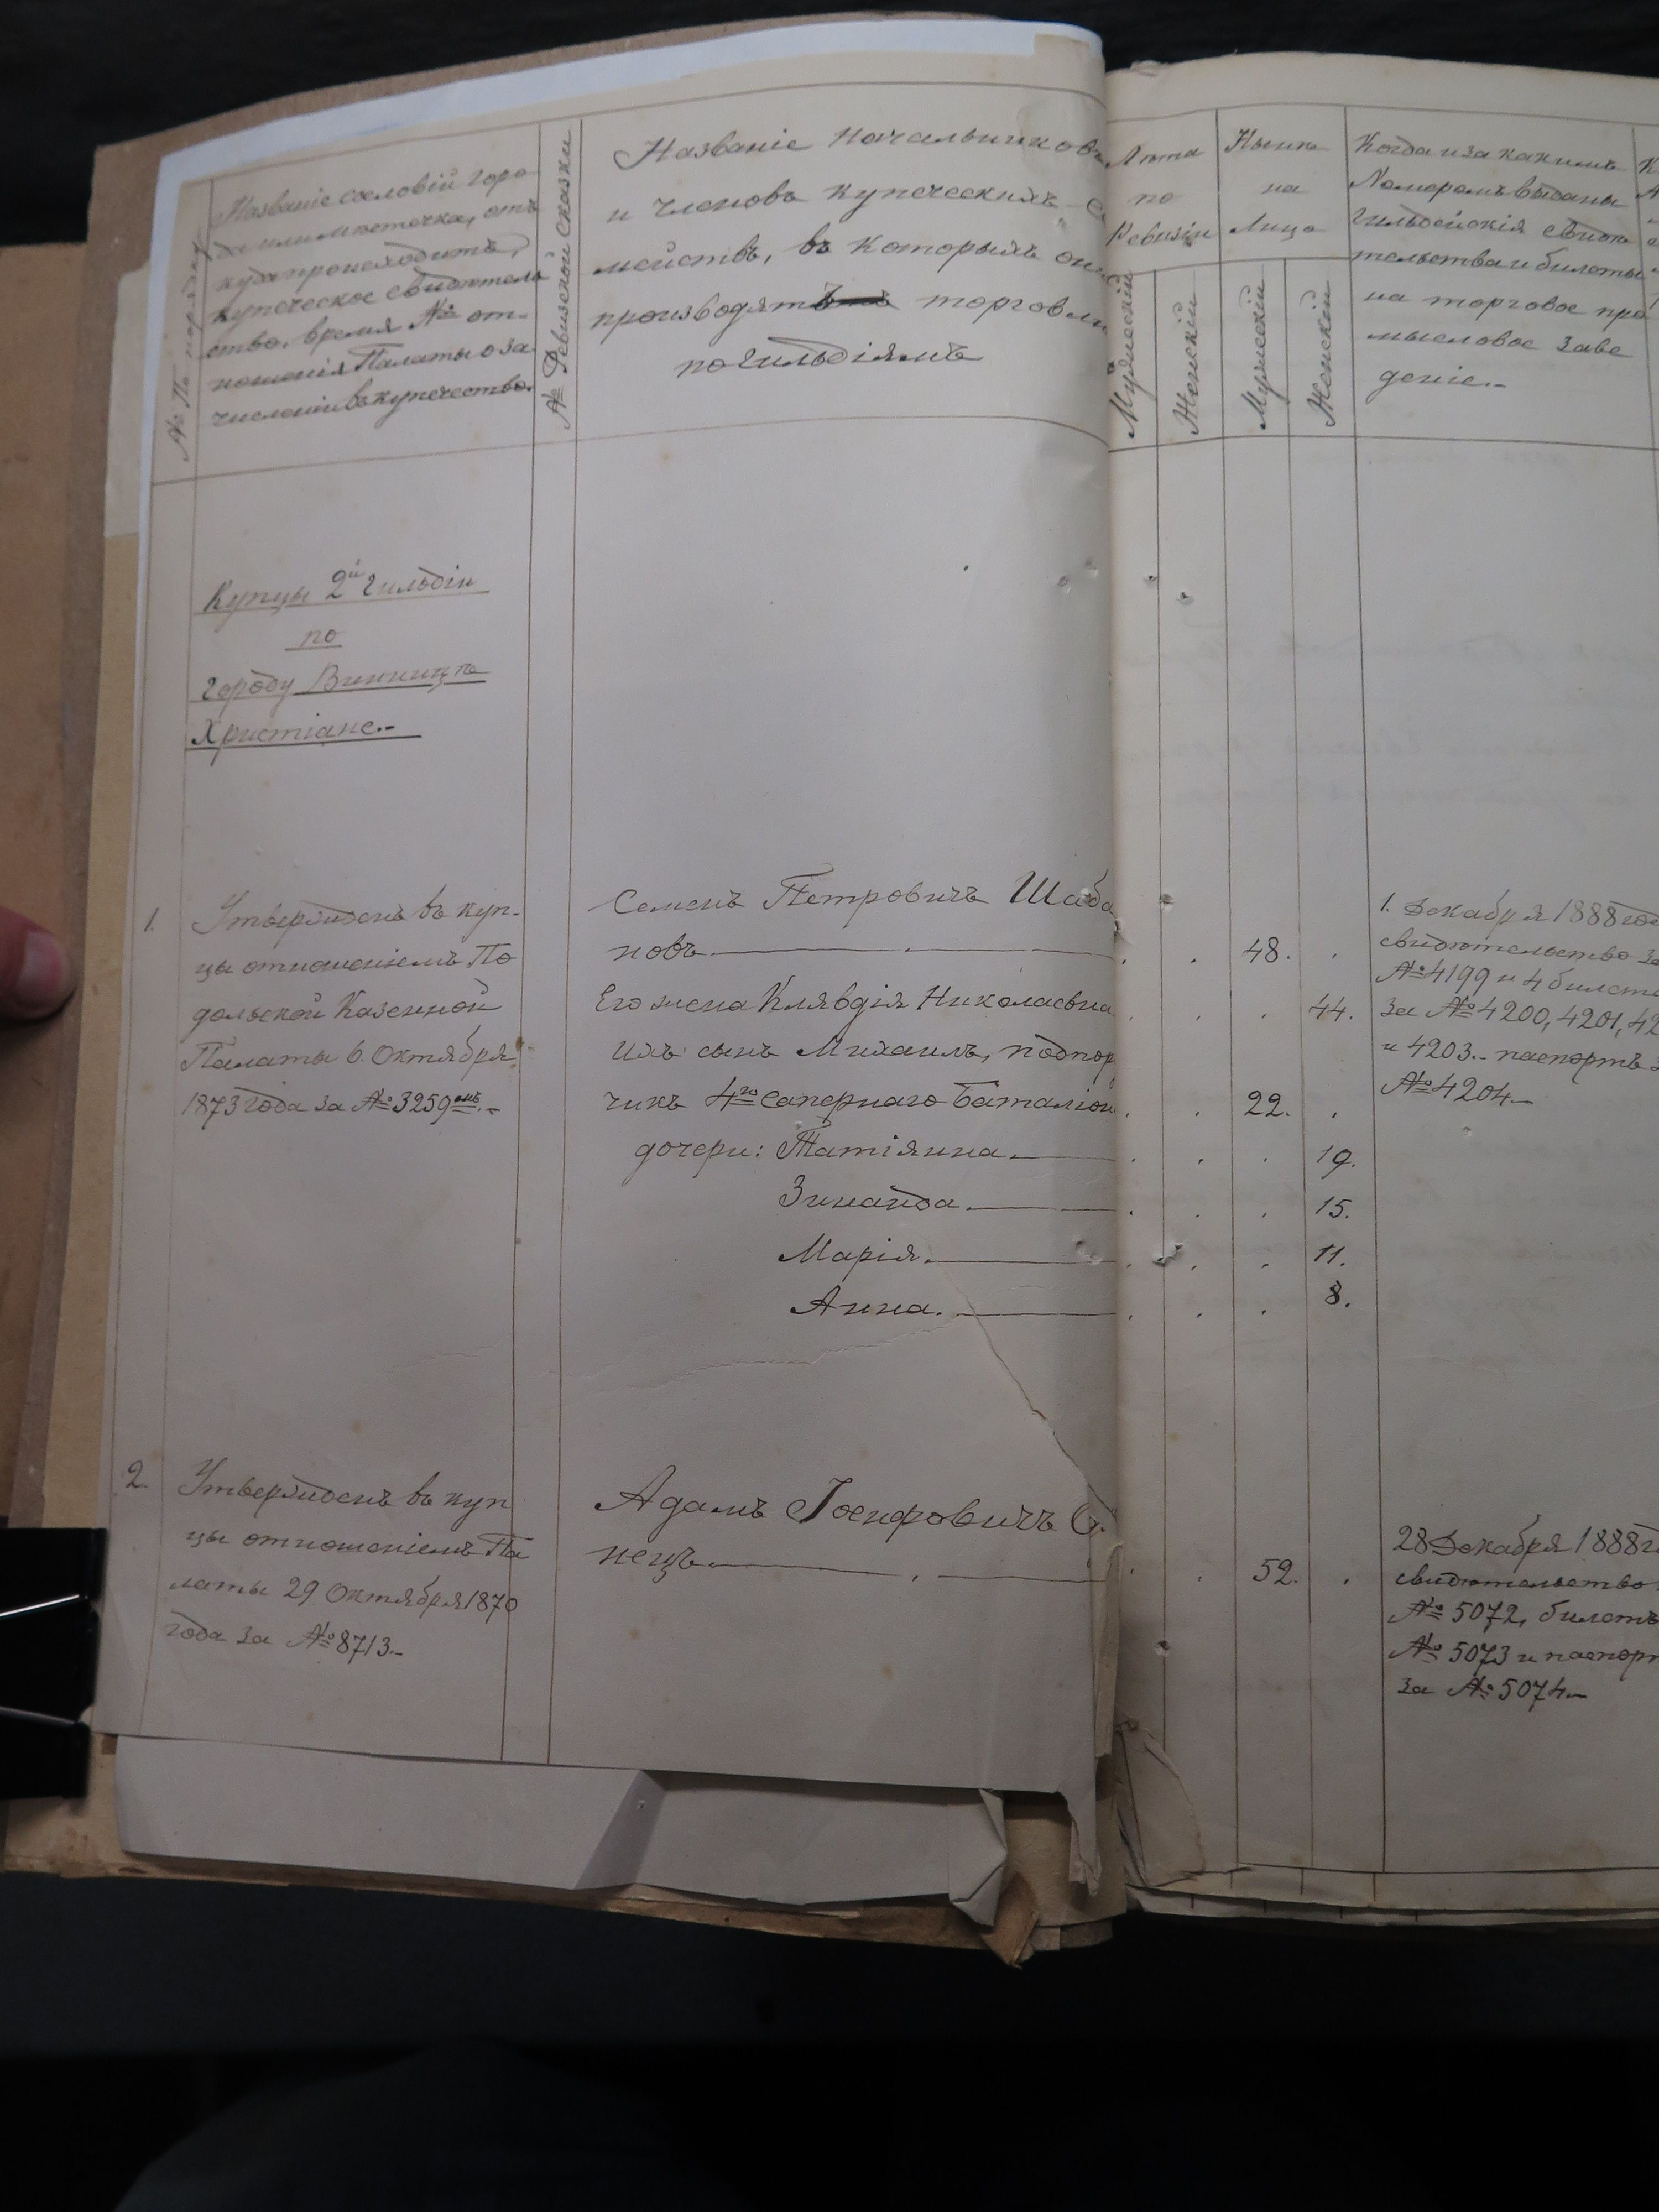 № По порядку
Названіе сословій горо
да или мѣстечка, отъ
куда происходитъ,
купеческое свидѣтель
ство, время № от-
ношенія Палаты о за
численіи въ купечество.
№ Ревизской сказки
Названіе Начальниковъ
и членовъ купеческихъ се
мействъ, въ которыхъ они
производятъ торговлю
по гильдіямъ
Лѣта
по
Ревизіи
Нынѣ
на
Лицо
Мужескій
Женскій
Мужескій
Женскій
Когда и за какимъ
Номеромъ выданы
Гильдейскія свидѣ
тельства и билеты
на торговое про
мысловое Заве
деніе.-
Купцы 2й Гильдіи
по
Городу Винницѣ
Христіане.-
1.
Утвержденъ въ куп-
цы отношеніемъ По
дольской Казенной
Палаты 6. Октября
1873 года за № 3259омъ.-
Семенъ Петровичъ Шаба
новъ 48.
Его жена Клявдія Николаевна 44.
Ихъ сынъ Михаилъ, подпор
чикъ 4го Сапернаго Баталіон 22.
дочери: Татіянна 19.
Зинаида. 15.
Марія. 11.
Анна. 8.
1. Декабря 1888 год
свидѣтельство за
№ 4199 и 4 билета
за № 4200, 4201, 42
и 4203.- паспортъ з
№ 4204-
2.
Утвержденъ въ куп
цы отношеніемъ Па
латы 29 Октября 1870
года за № 8713.-
Адамъ Іосифовичъ
нецъ 52.
28 Декабря 1888 г
свидѣтельство
№ 5072, билетъ
№ 5073 и паспорт
за № 5074-